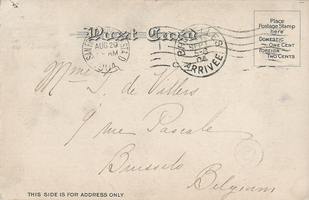 Post Card
Place
Postage Stamp
here
DOMESTIC
ONE CENT
FOREIGN
TWO CENTS
AUG 29
ARRIVÉE
Mme J. de Villers
9 rue Pascale
Brussels
Belgium
THIS SIDE IS FOR ADDRESS ONLY.